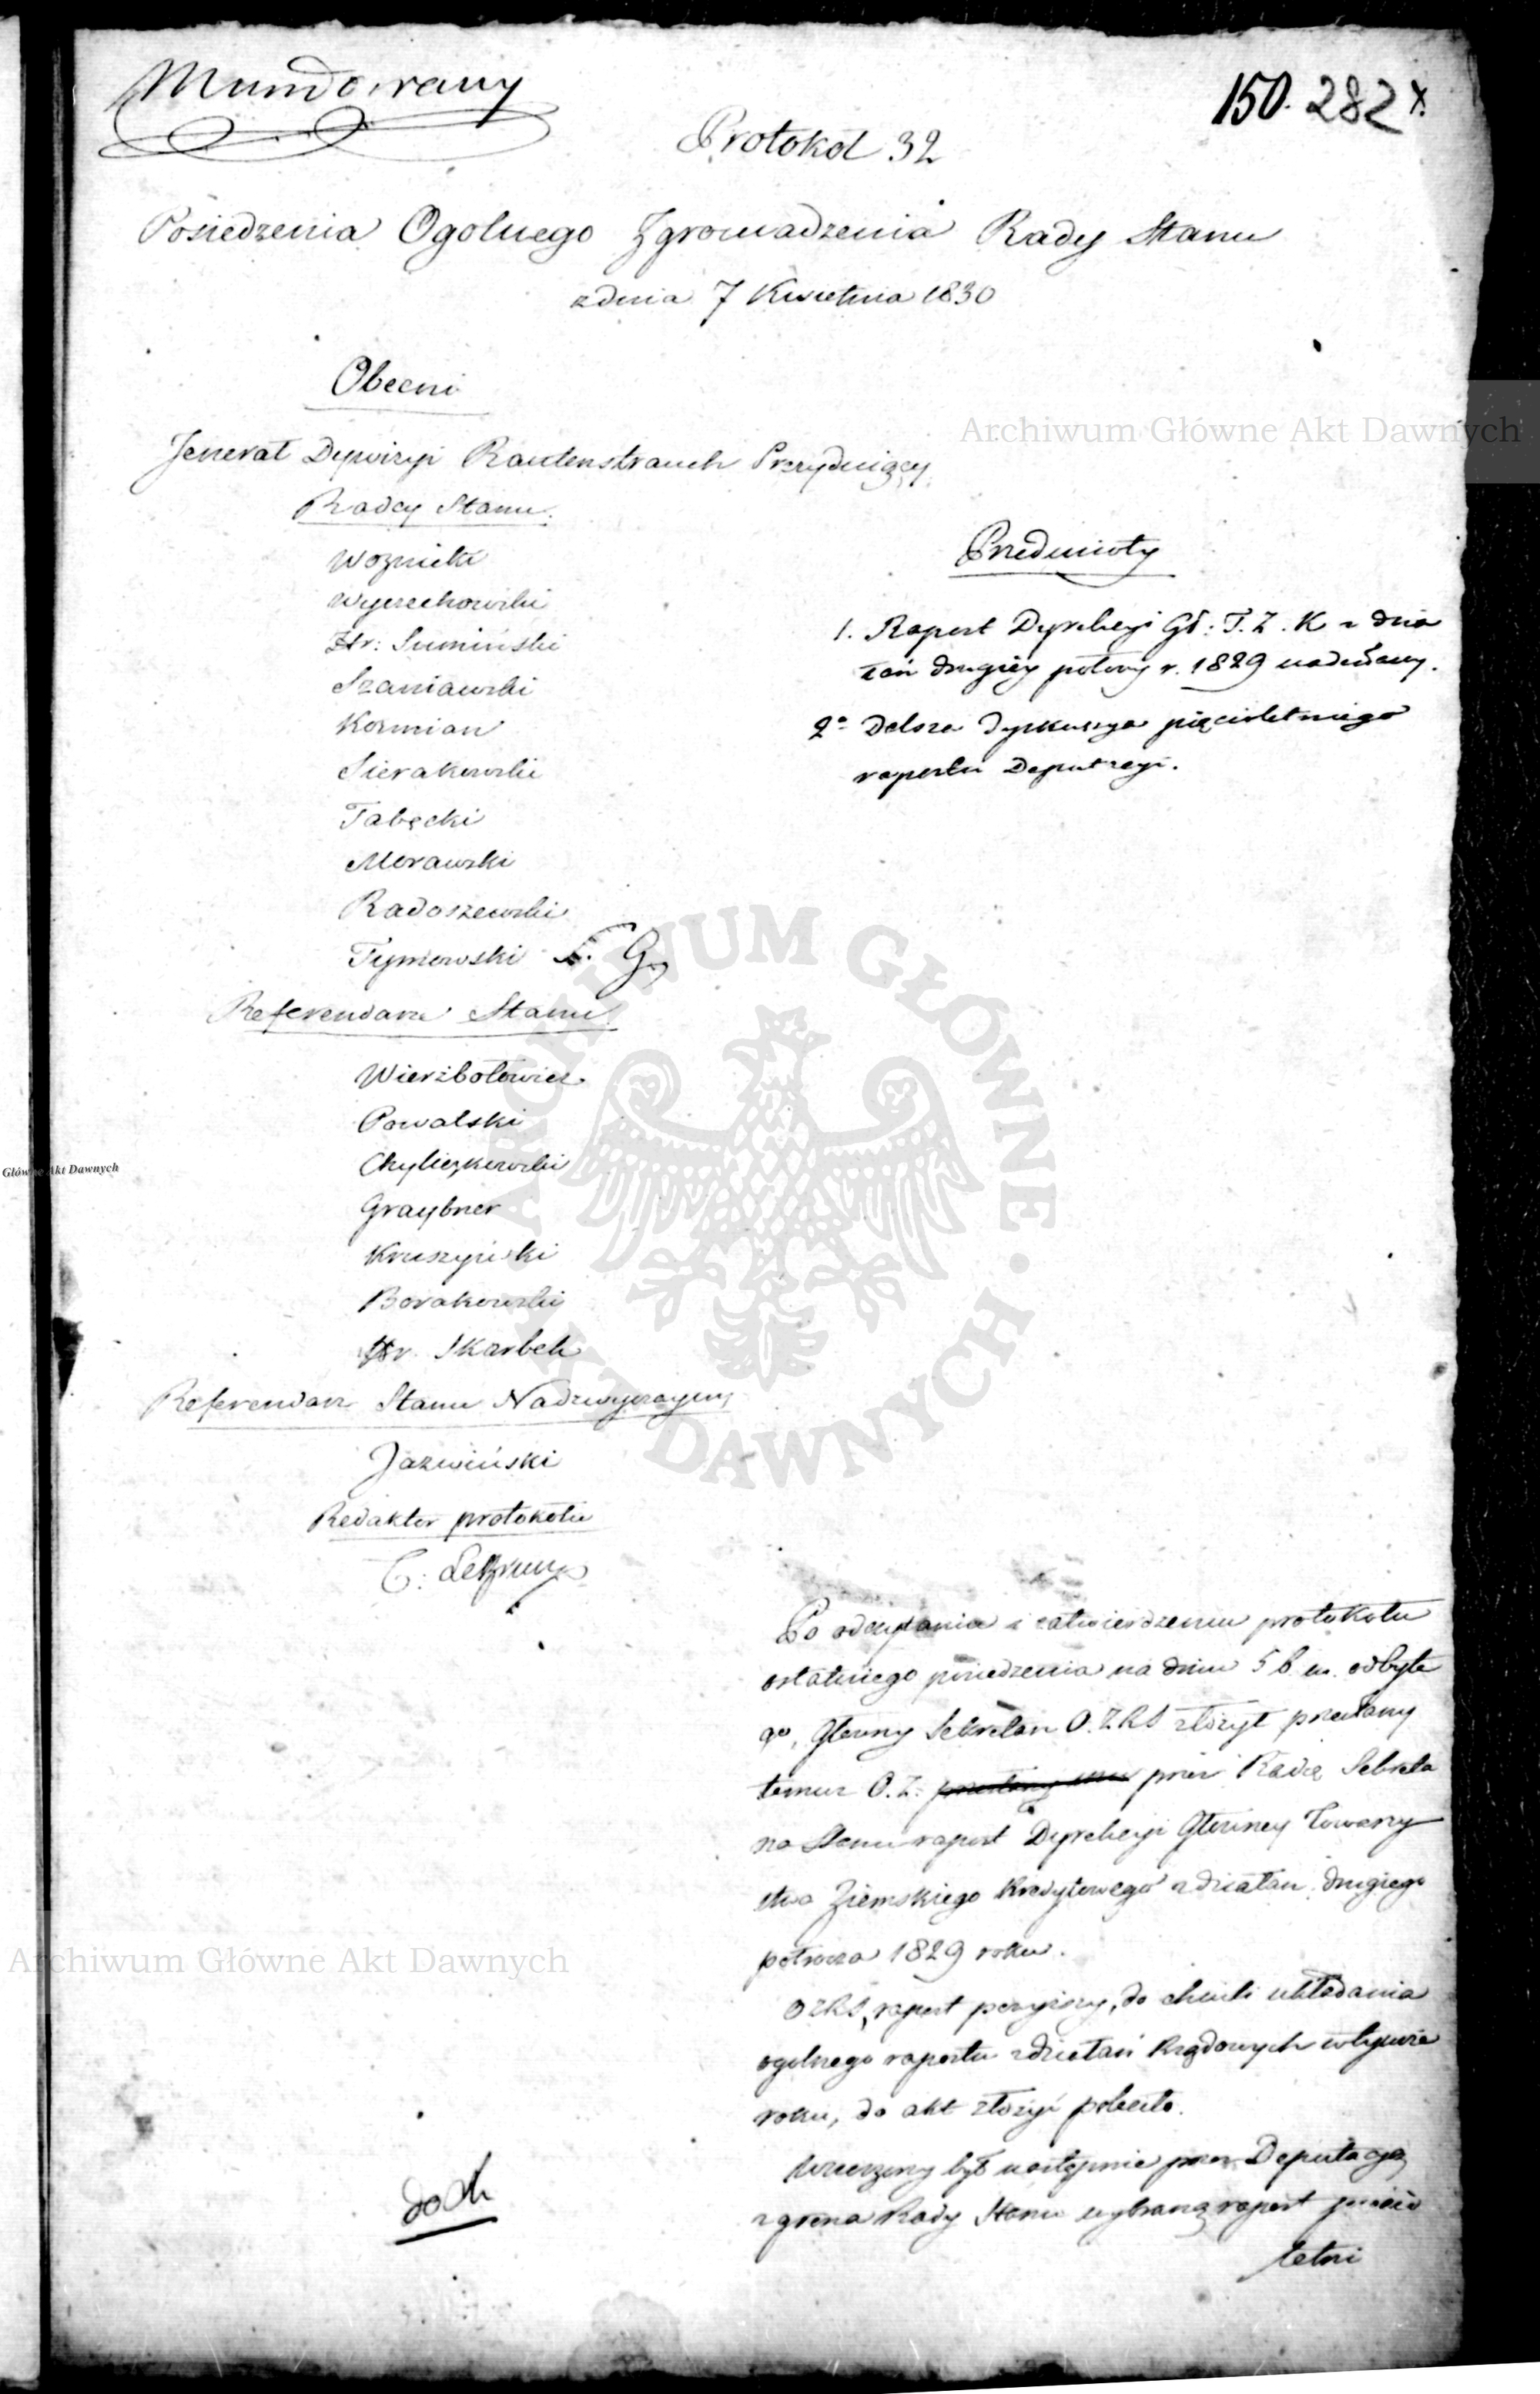 Mundowany
150. 282 x.
Protokół 32
Posiedzenia Ogolnego Zgromadzenia Rady Stanu
z dnia 7 Kwietnia 1830
Obecni
Jenerał Dywizyi Rautenstrauch Prezydujący
Radcy Stanu.
Woznicki
Wyczechowski
Hr: Sumiński
Szaniawski
Kozmian
Sierakowski
Tabęcki
Morawski
Radoszewski
Tymowski S. G.
Referendarze Stanu
Wierzbołowicz
Powalski
Chyliczkowski
Graybner
Kruszyński
Borakowski
Hr. Skarbek
Referendarz Stanu Nadzwyczayny
Jazwiński
Redaktor protokołu
C:
Przedmioty
1. Raport Dyrekcyi Gł: T. Z. K z dzia
łań drugiéy połowy r. 1829 nadesłany.
2o Dalsza dyskussya pięcioletniego
raportu Deputacyi.
Po odczytaniu i zatwierdzeniu protokołu
ostatniego posiedzenia na dniu 5 b. m. odbyte
go, Głowny Sekretarz O. Z. R. S złożył przesłany
temuz O. Z: przez Radcę Sekreta
rza Stanu raport Dyrekcyi Głowney Towarzy
stwa Ziemskiego Kredytowego z działań drugiego
połrocza 1829 roku.
OZRS, raport powyższy, do chwili układania
ogolnego raportu z działań Rządowych w tymże
roku, do akt złożyć poleciło.
Wnieziony był następnie przez Deputacyą
z grona Rady Stanu wybraną raport pięcio
letni
Archiwum Główne Akt Dawnych
Główne Akt Dawnych
ARCHIWUM GŁÓWNE · AKT DAWNYCH ·
Archiwum Główne Akt Dawnych